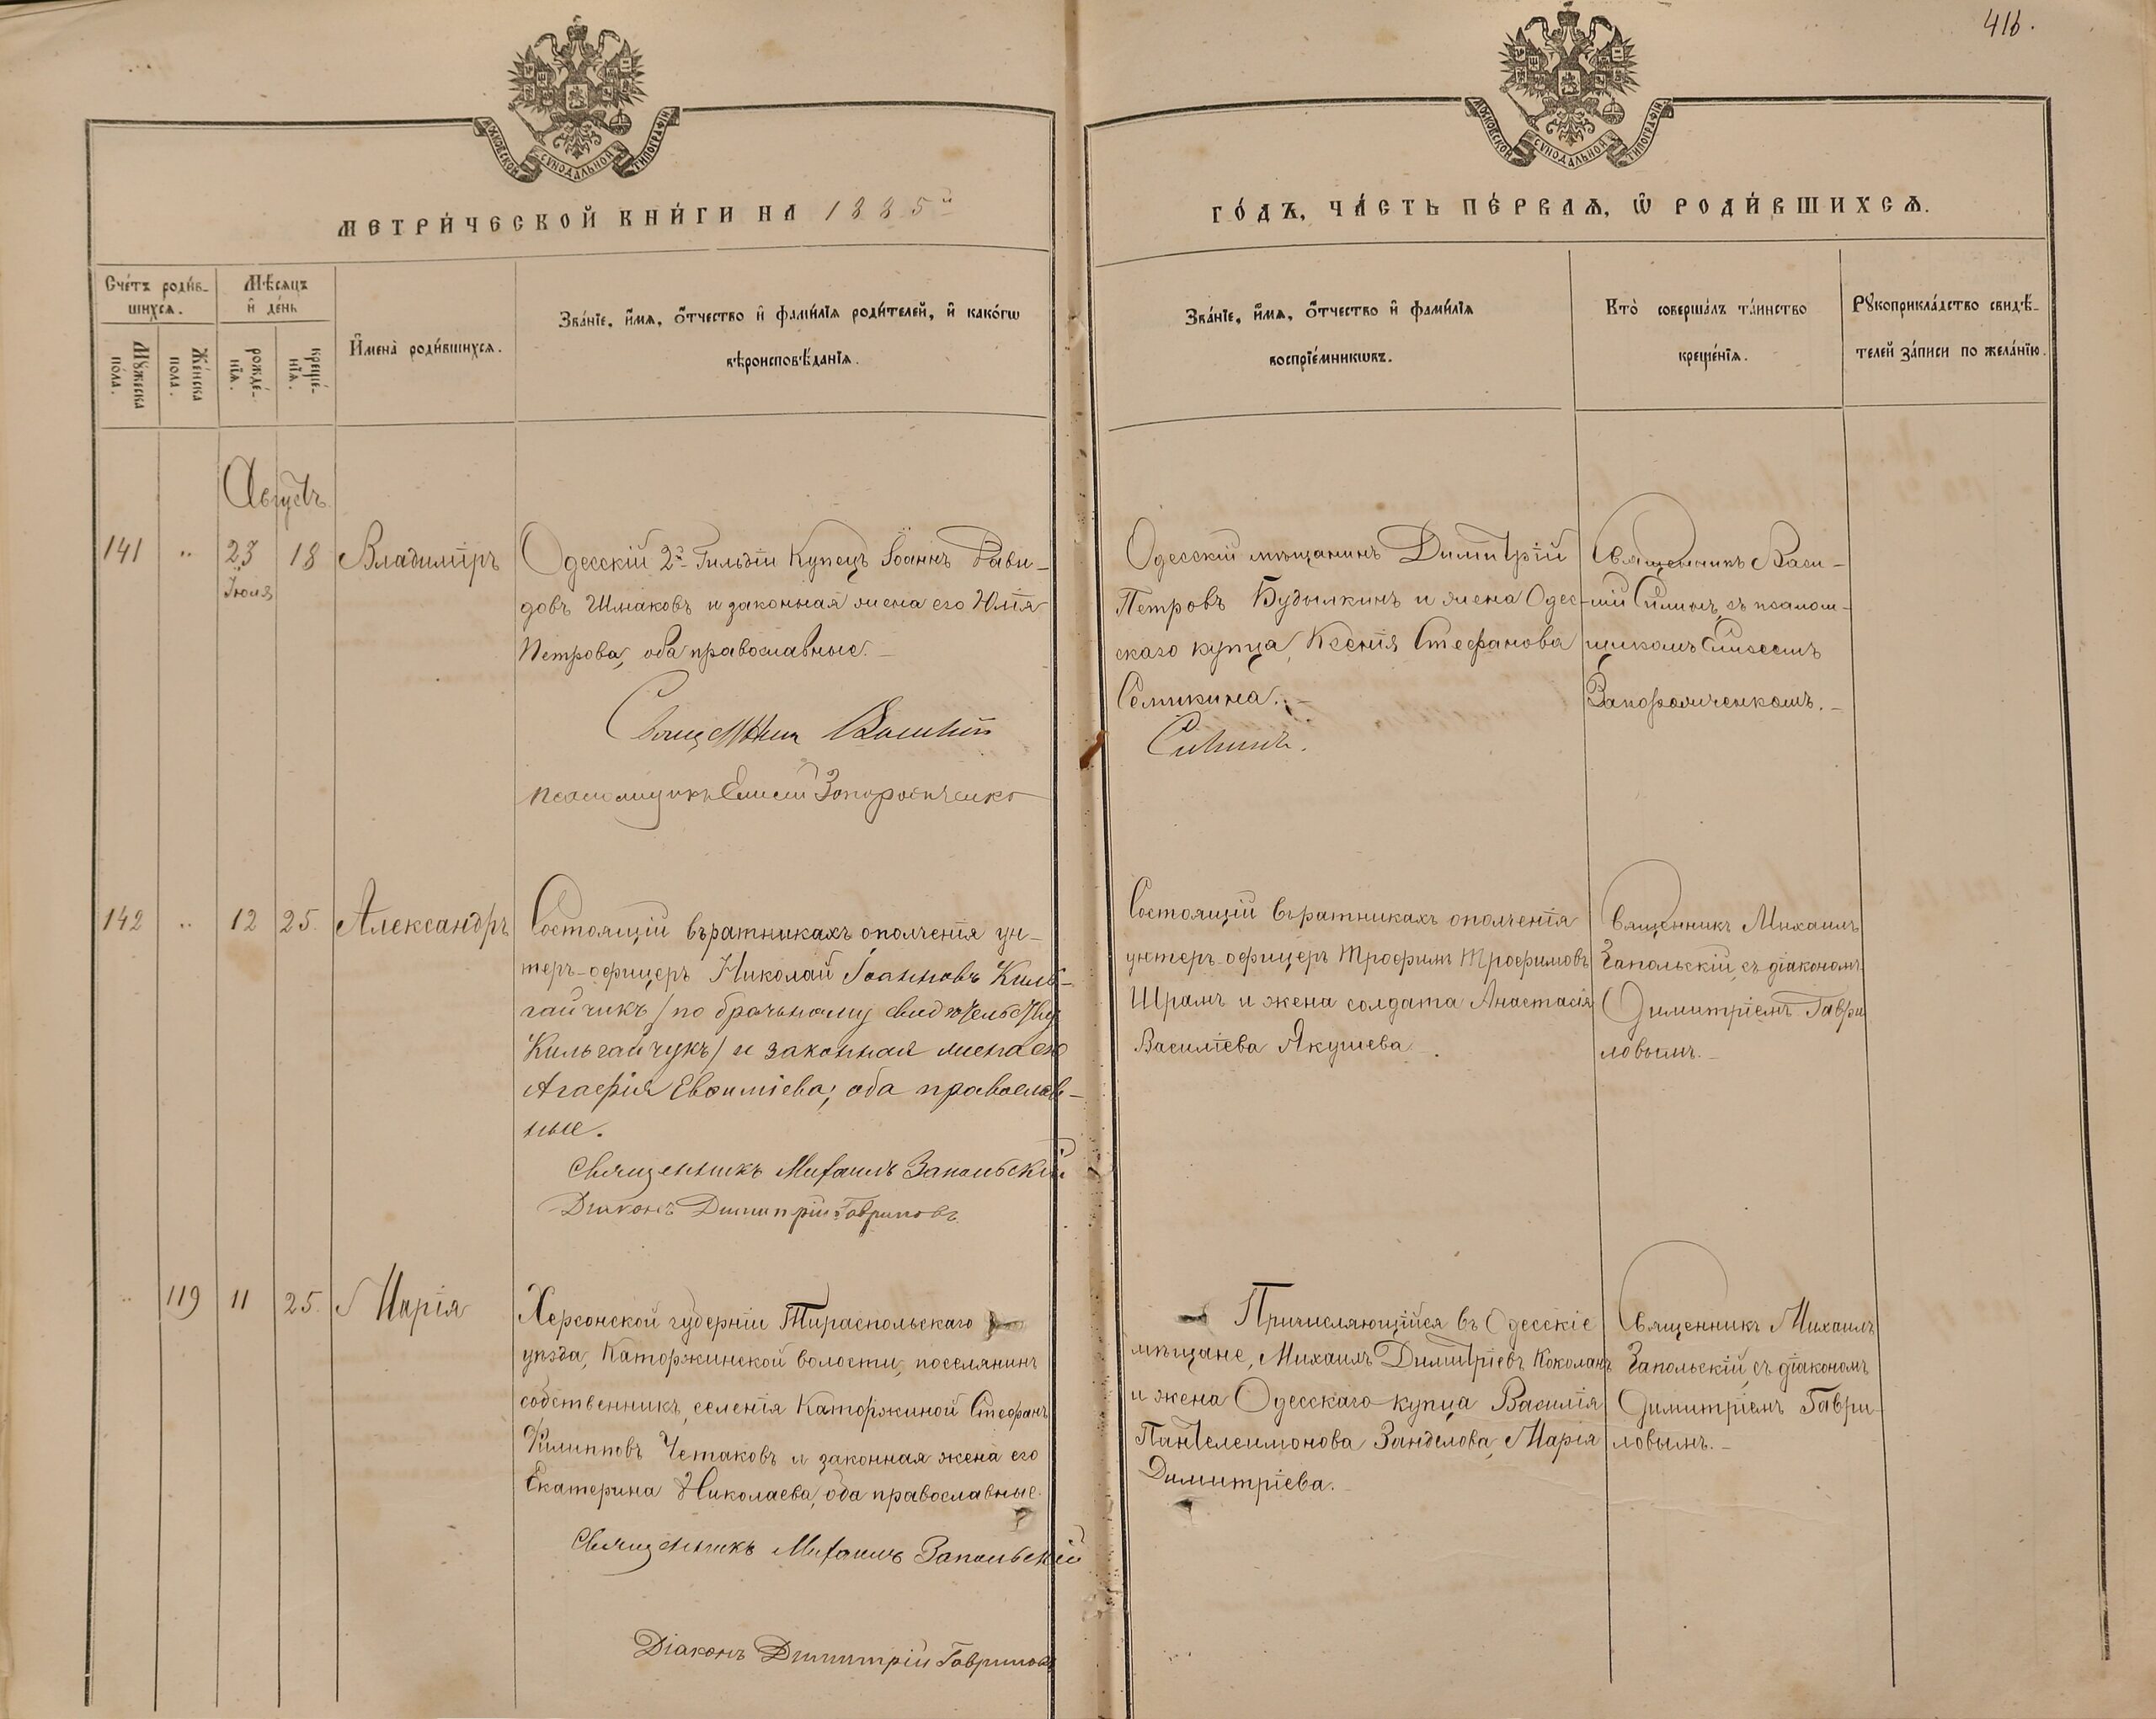 416.
МОСКОВСКОЙ СѴНОДАЛЬНОЙ ТИПОГРАФІИ
МОСКОВСКОЙ СѴНОДАЛЬНОЙ ТИПОГРАФІИ
МЕТРИ́ЧЕСКОЙ КНИ́ГИ НА 1885й
ГО́ДЪ, ЧА́СТЬ ПЕ́РВАѦ, Ѡ РОДИ́ВШИХСѦ.
Сче́тъ роди́в-
шихсѧ.
Мꙋ́жеска
по́ла.
Же́нска
пола.
Мѣ́сѧцъ
и҆ де́нь
рожде́-
нїѧ.
креще́-
нїѧ.
И҆мена̀ роди́вшихсѧ.
Зва́нїе, и҆́мѧ, ѻ҆́тчество и҆ фами́лїѧ роди́телей, и҆ како́гѡ
вѣроисповѣ́данїѧ.
Зва́нїе, и҆́мѧ, ѻ҆́тчество и҆ фами́лїѧ
воспрїе́мникѡвъ.
Кто̀ соверша́лъ та́инство
креще́нїѧ.
Рꙋкоприкла́дство свидѣ́-
телей за́писи по жела́нїю.
Августъ
141 „ 23 18 Владиміръ
Іюля
Одесскій 2й Гильдіи Купецъ Іоаннъ Дави-
довъ Шмаковъ и законная жена его Юлія
Петрова, оба православные.
Священникъ Василій
псаломщикъ Елисей Запорожченко
Одесскій мѣщанинъ Димитрій
Петровъ Будылкинъ и жена Одес-
скаго купца, Ксенія Стефанова
Семикина.
Силинъ.
Священникъ Васи-
лій Силинъ, съ псалом-
щикомъ Елисеемъ
Запорожченкомъ.
142 „ 12 25. Александръ
Состоящій въ ратникахъ ополченія ун-
теръ-офицеръ Николай Іоанновъ Киль-
гайчикъ /по брачному свидѣтельству
Кильгайчукъ/ и законная жена его
Агафія Евѳиміева; оба православ-
ные.
Священникъ Михаилъ Запольскій
Діаконъ Димитрій Гавриловъ
Состоящій въ ратникахъ ополченія
унтеръ-офицеръ Трофимъ Трофимовъ
Шрамъ и жена солдата Анастасія
Василіева Якушева.
Священникъ Михаилъ
Запольскій, съ діакономъ
Димитріемъ Гаври
ловымъ.
„ 119 11 25. Марія
Херсонской губерніи Тираспольскаго
уѣзда, Каторжинской волости, поселянинъ
собственникъ, селенія Каторжиной Стефанъ
Филипповъ Четаковъ и законная жена его
Екатерина Николаева, оба православные.
Священникъ Михаилъ Запольскій
Діаконъ Димитрій Гавриловъ
Причисляющійся въ Одесскіе
мѣщане, Михаилъ Димитріевъ Коколанъ
и жена Одесскаго купца Василія
Пантелеимонова Занделова, Марія
Димитріева.
Священникъ Михаилъ
Запольскій, съ діакономъ
Димитріемъ Гаври-
ловымъ.